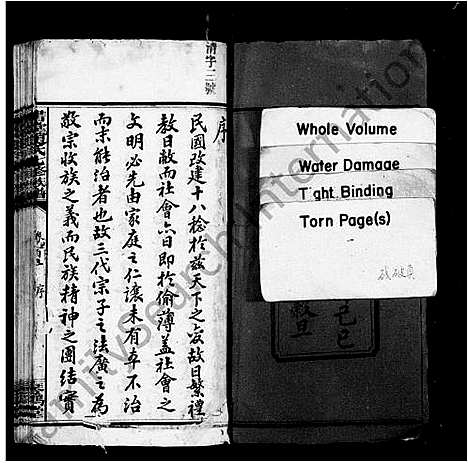 序
民國改建十八稔於茲天下之變故日繁禮
教日敝而社會亦日即於偷薄蓋社會之
文明必先由家庭之仁讓未有卒不治
而末能治者也故三代宗子之法廣之為
敬宗收族之義而民族精神之團結實
清字三號
Whole Volume
Water Damage
Tight Binding
Torn Page(s)
残破頁
己巳